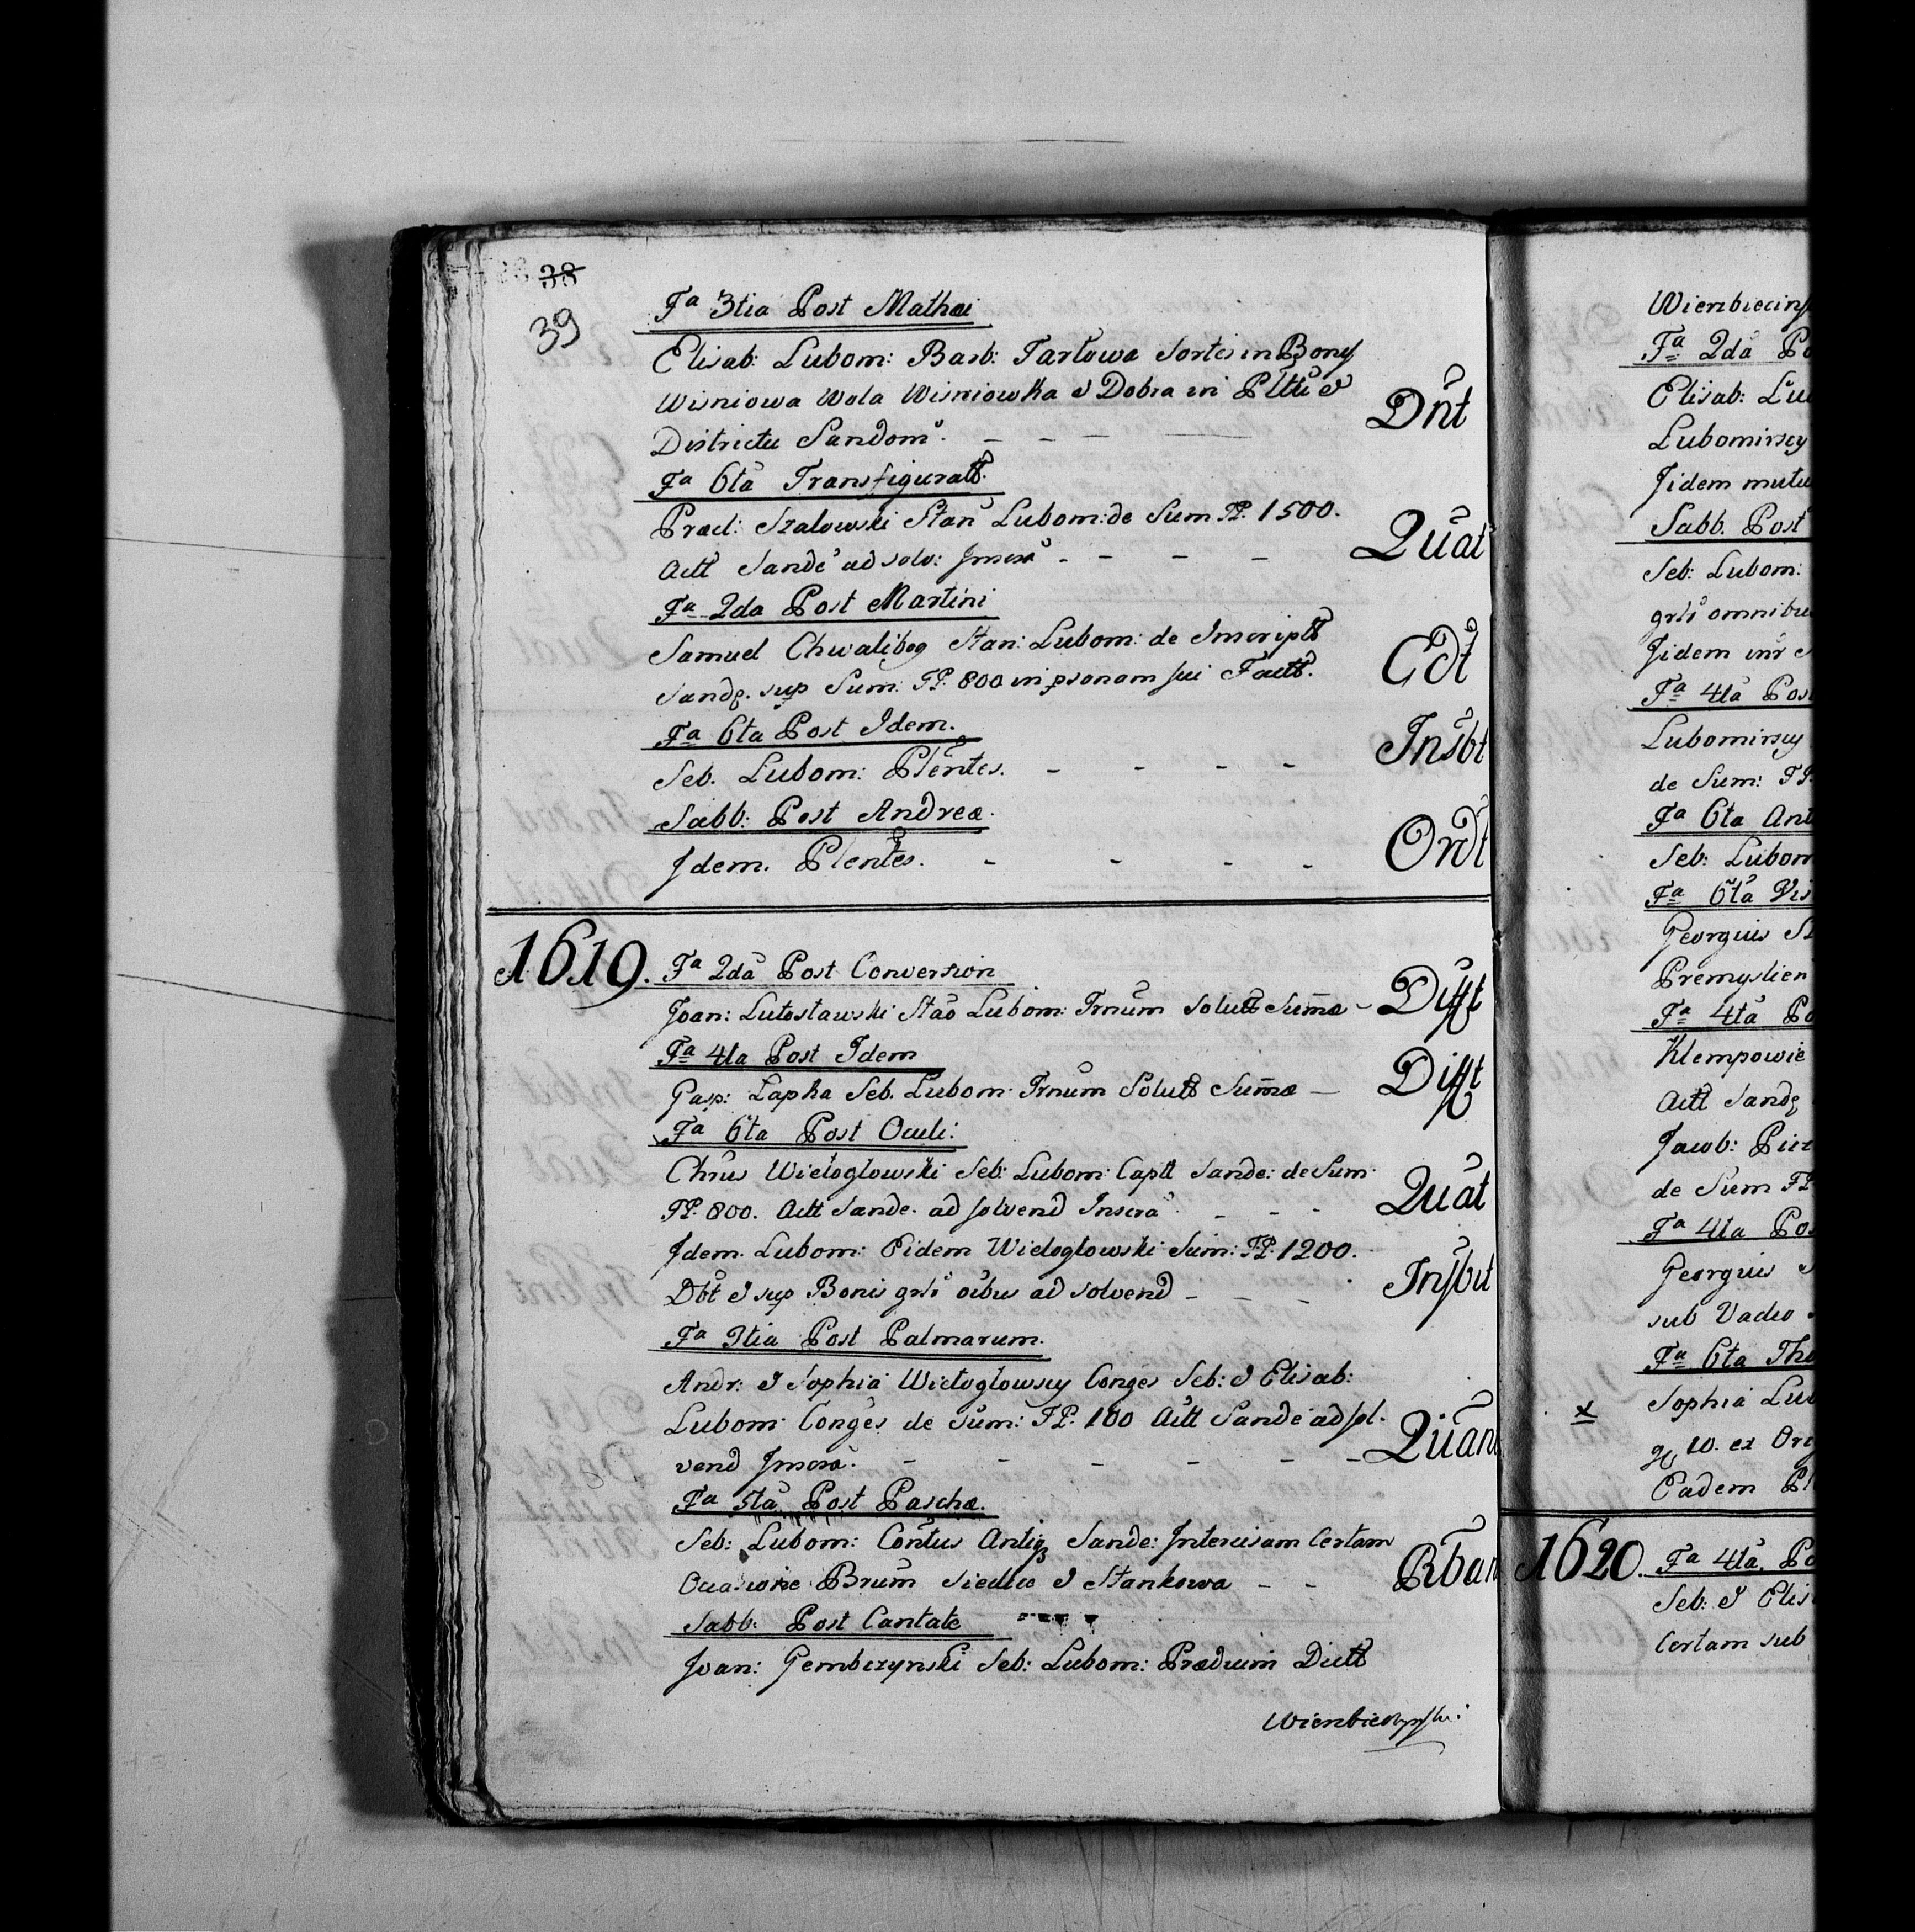 38
39
Fa 3tia Post Mathæi
Elisab: Lubom: Barb: Tarłowa sortes in Bonys
Wisniowa Wola Wisniowka & Dobra in Pltu &
Districtu Sandom. - - -
Dnt
Fa 6ta Transfiguratt.
Præd: Szalowski Stan Lubom: de Sum FP. 1500.
Actt Sande ad solv: Jnscra - - - -
Quat
Fa 2da Post Martini
Samuel Chwalibog Stan: Lubom: de Inscriptt
Sandę. sup Sum: FP. 800 in psonam sui Factt.
Cdt
Fa 6ta Post Idem.
Seb. Lubom: Plentes. - - - -
Insbt
Sabb: Post Andreæ.
Jdem. Plentes. - - - -
Ordt
1619. Fa 2da Post Conversion
Joan: Lutosławski Stao Lubom: Trnum Solutt Summæ -
Difft
Fa 4ta Post Idem
Gasp: Łapka Seb. Lubom: Trnum Solutt Summæ -
Difft
Fa 6ta Post Oculi:
Chrus Wielogłowski Seb: Lubom: Captt Sande: de Sum
FP. 800. Actt Sande. ad solvend Inscra - - -
Quat
Jdem. Lubom: Eidem Wielogłowski Sum: FP. 1200.
Dbt & sup Bonis grlr oibus ad solvend - - -
Insbit
Fa 3tia Post Palmarum.
Andr: & Sophia Wielogłowscy Conges Seb: & Elisab:
Lubom: Conges de Sum: FP. 100 Actt Sande ad sol-
vend Jnscra. - - - - - -
Quan
Fa 5ta Post Paschæ.
Seb: Lubom: Contus Antiq Sande: Intercisam Certam
Occasione Brum Siedlce & Stankowa - -
Rban
Sabb: Post Cantate
Joan: Gembczynski Seb: Lubom: Prædium Dictt
Wienbiecinsk
Fa 2da Po
Elisab: Lu
Lubomirscy
Jidem mutu
Sabb. Post
Seb: Lubom:
grlr omnibu
Jidem inr
Fa 4ta Pos
Lubomirscy
de Sum: FP
Fa 6ta Ant
Seb: Lubom
Fa 6ta Vis
Georgius
Premyslien
Fa 4ta Po
Klempowie
Actt Sandę
Jacob: Pie
de Sum FP
Fa 4ta Po
Georgius
sub Vadio
Fa 6ta Tho
x
Sophia Lub
10. ex Ori
Eadem Pl
1620. Fa 4ta. Po
Seb: & Elis
Certam sub